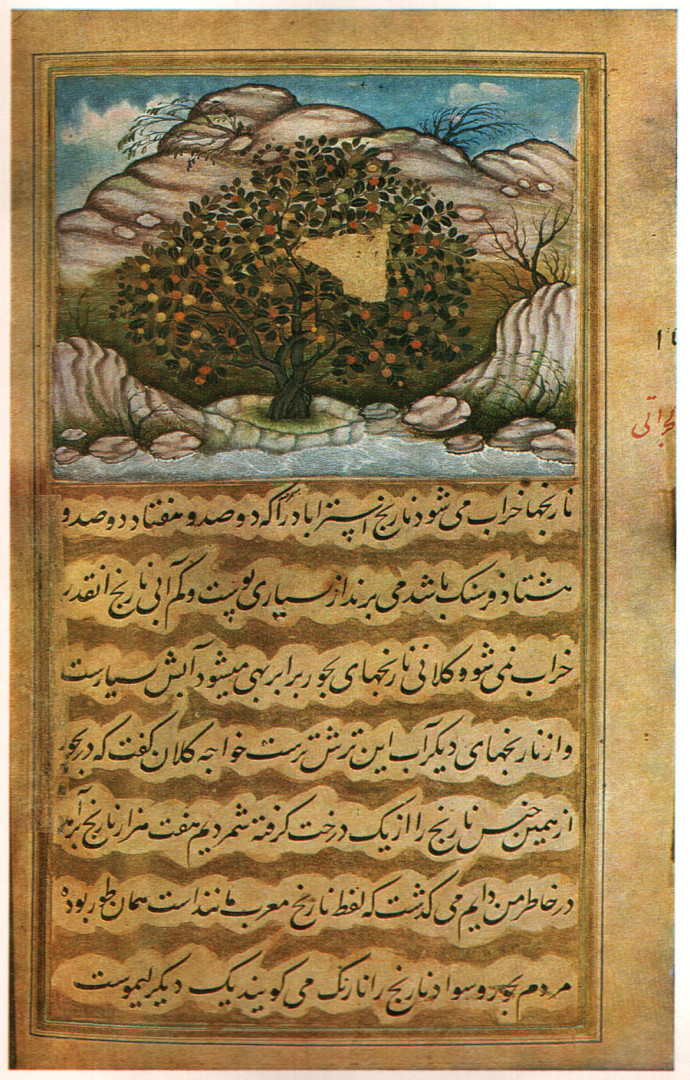 نارنجها خراب می شود نارنج استراباد را که دو صد و هفتاد دو صد و
هشتاد فرسنگ باشد می برند از سیاری پوست و کم آبی نارنج انقدر
خراب نمی شود و کلانی نارنجهای بجور برابر بهی میشود آبش سیارست
و از نارنجهای دیگر آب این ترش ترست خواجه کلان گفت که در بجور
از همین جنس نارنج را از یک درخت گرفته شمردیم هفت هزار نارنج برآمد
در خاطر من دایم می گذشت که لفظ نارنج معرب مانند است همان طور بوده
مردم بجور و سواد نارنج را نارنگ می گویند یک دیگر لیموست